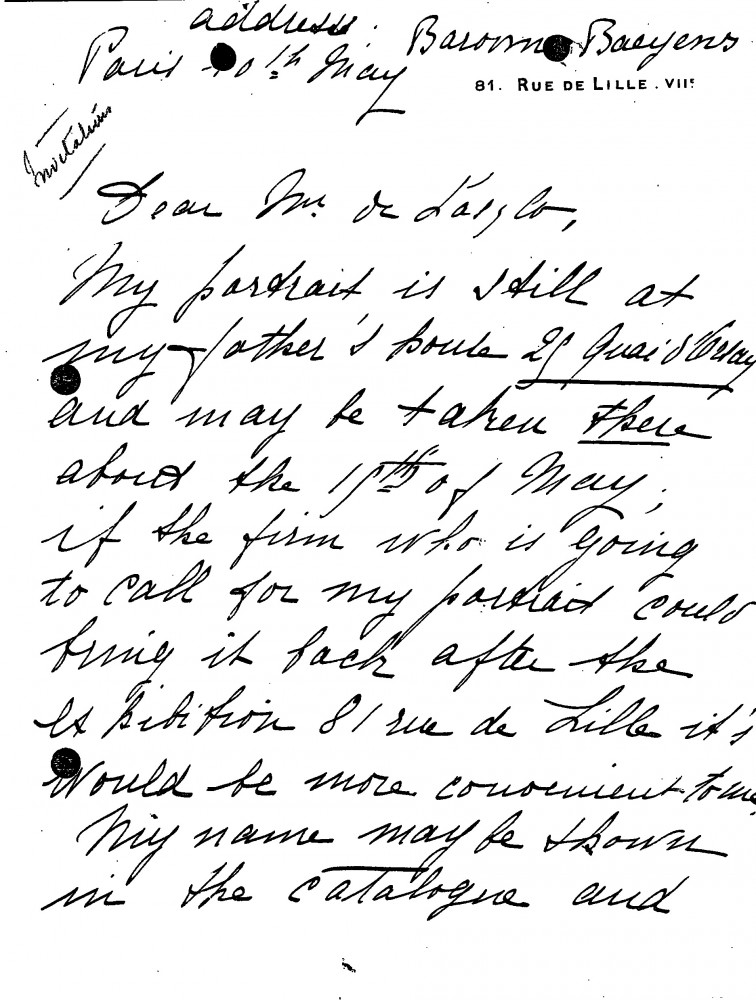 address: Baronne Baeyens
Paris 10th May
81. RUE DE LILLE. VIIE
Invitations
Dear Mr. de László,
My portrait is still at
my father's house 29 Quai d'Orsay
and may be taken there
about the 15th of May,
if the firm who is going
to call for my portrait could
bring it back after the
Exhibition 81 rue de Lille it's
would be more convenient to me,
My name may be shown
in the catalogue and